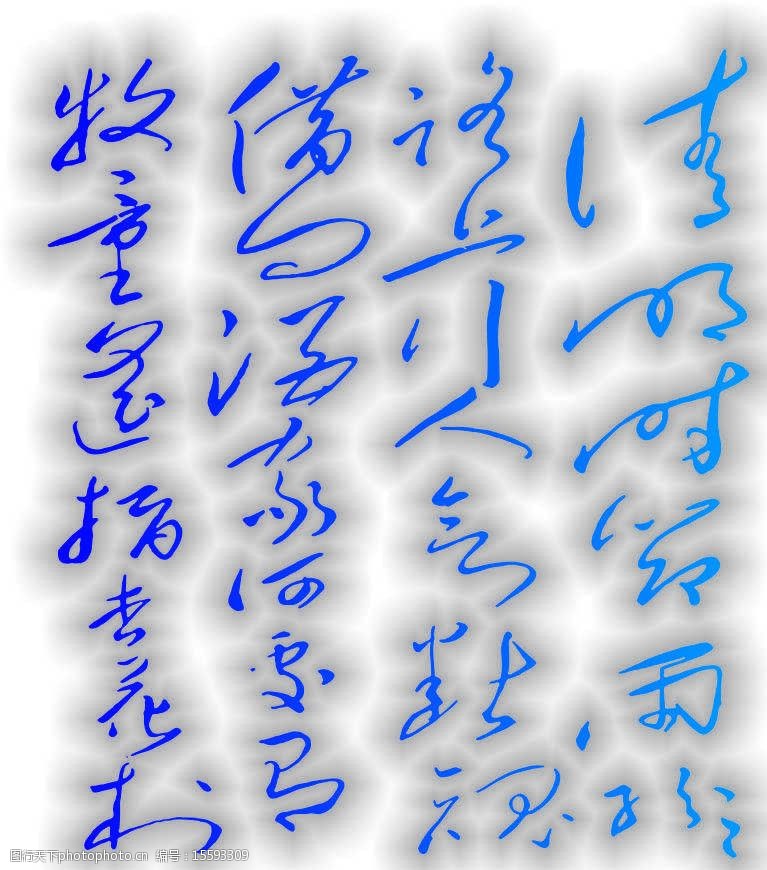 清明時節雨紛紛
路上行人欲斷魂
借問酒家何處有
牧童遙指杏花村
图行天下photophoto.cn 编号：15593309